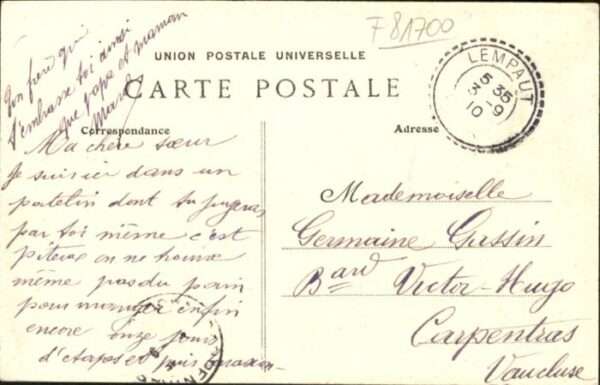 F 81700
Ton frère qui
t'embrasse toi ainsi
que papa et maman
UNION POSTALE UNIVERSELLE
CARTE POSTALE
Correspondance
Adresse
LEMPAUT
5 35
3 -9
10
Ma chère sœur
Je suis ici dans un
patelin dont tu jugeras
par toi même c'est
piteux on ne trouve
même pas du pain
pour manger enfin
encore onze jours
d'étapes et puis
Mademoiselle
Germaine Gassin
Bard Victor-Hugo
Carpentras
Vaucluse